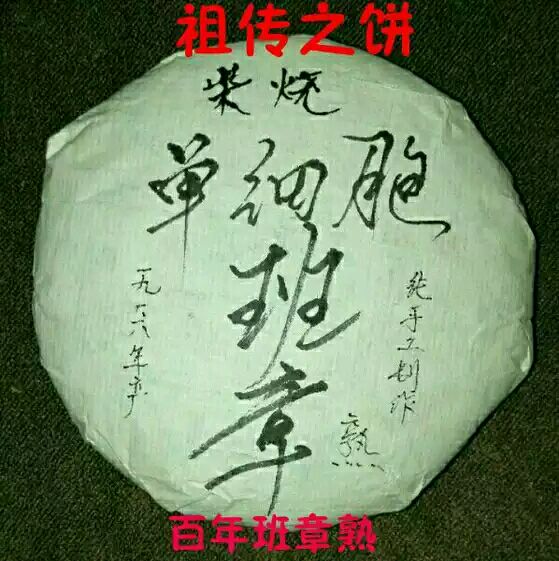 祖传之饼
柴烧
单细胞
班章
一九六六年产
纯手工制作
熟
百年班章熟